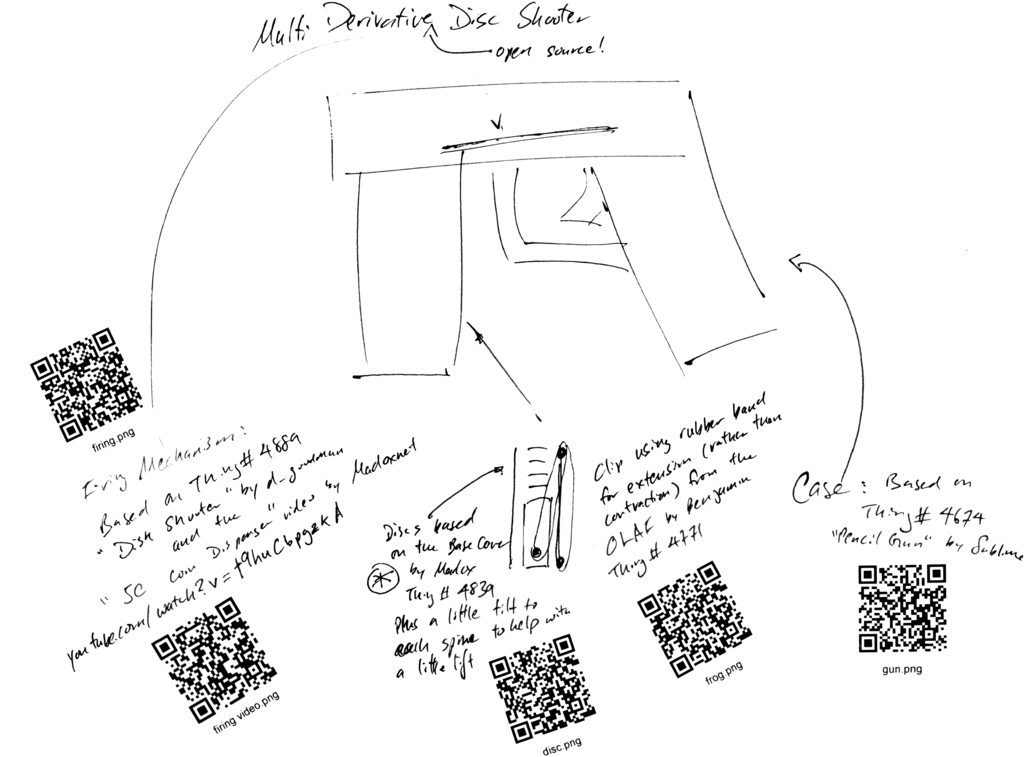 Multi Derivative Disc Shooter
open source!
firing.png
Firing Mechanism:
Based on Thing# 4889
"Disk Shooter" by d_goodman
and the
"5C Coin Dispenser" video by Madoxnet
youtube.com/watch?v=
firing video.png
Discs based
on the Base Cover
by Madox
Thing # 4839
Plus a little tilt to
each spine to help with
a little lift
disc.png
Clip using rubber band
for extension (rather than
contraction) from the
OLAF by Benjamin
Thing # 4771
frog.png
Case: Based on
Thing# 4674
"Pencil Gun" by Sublime
gun.png